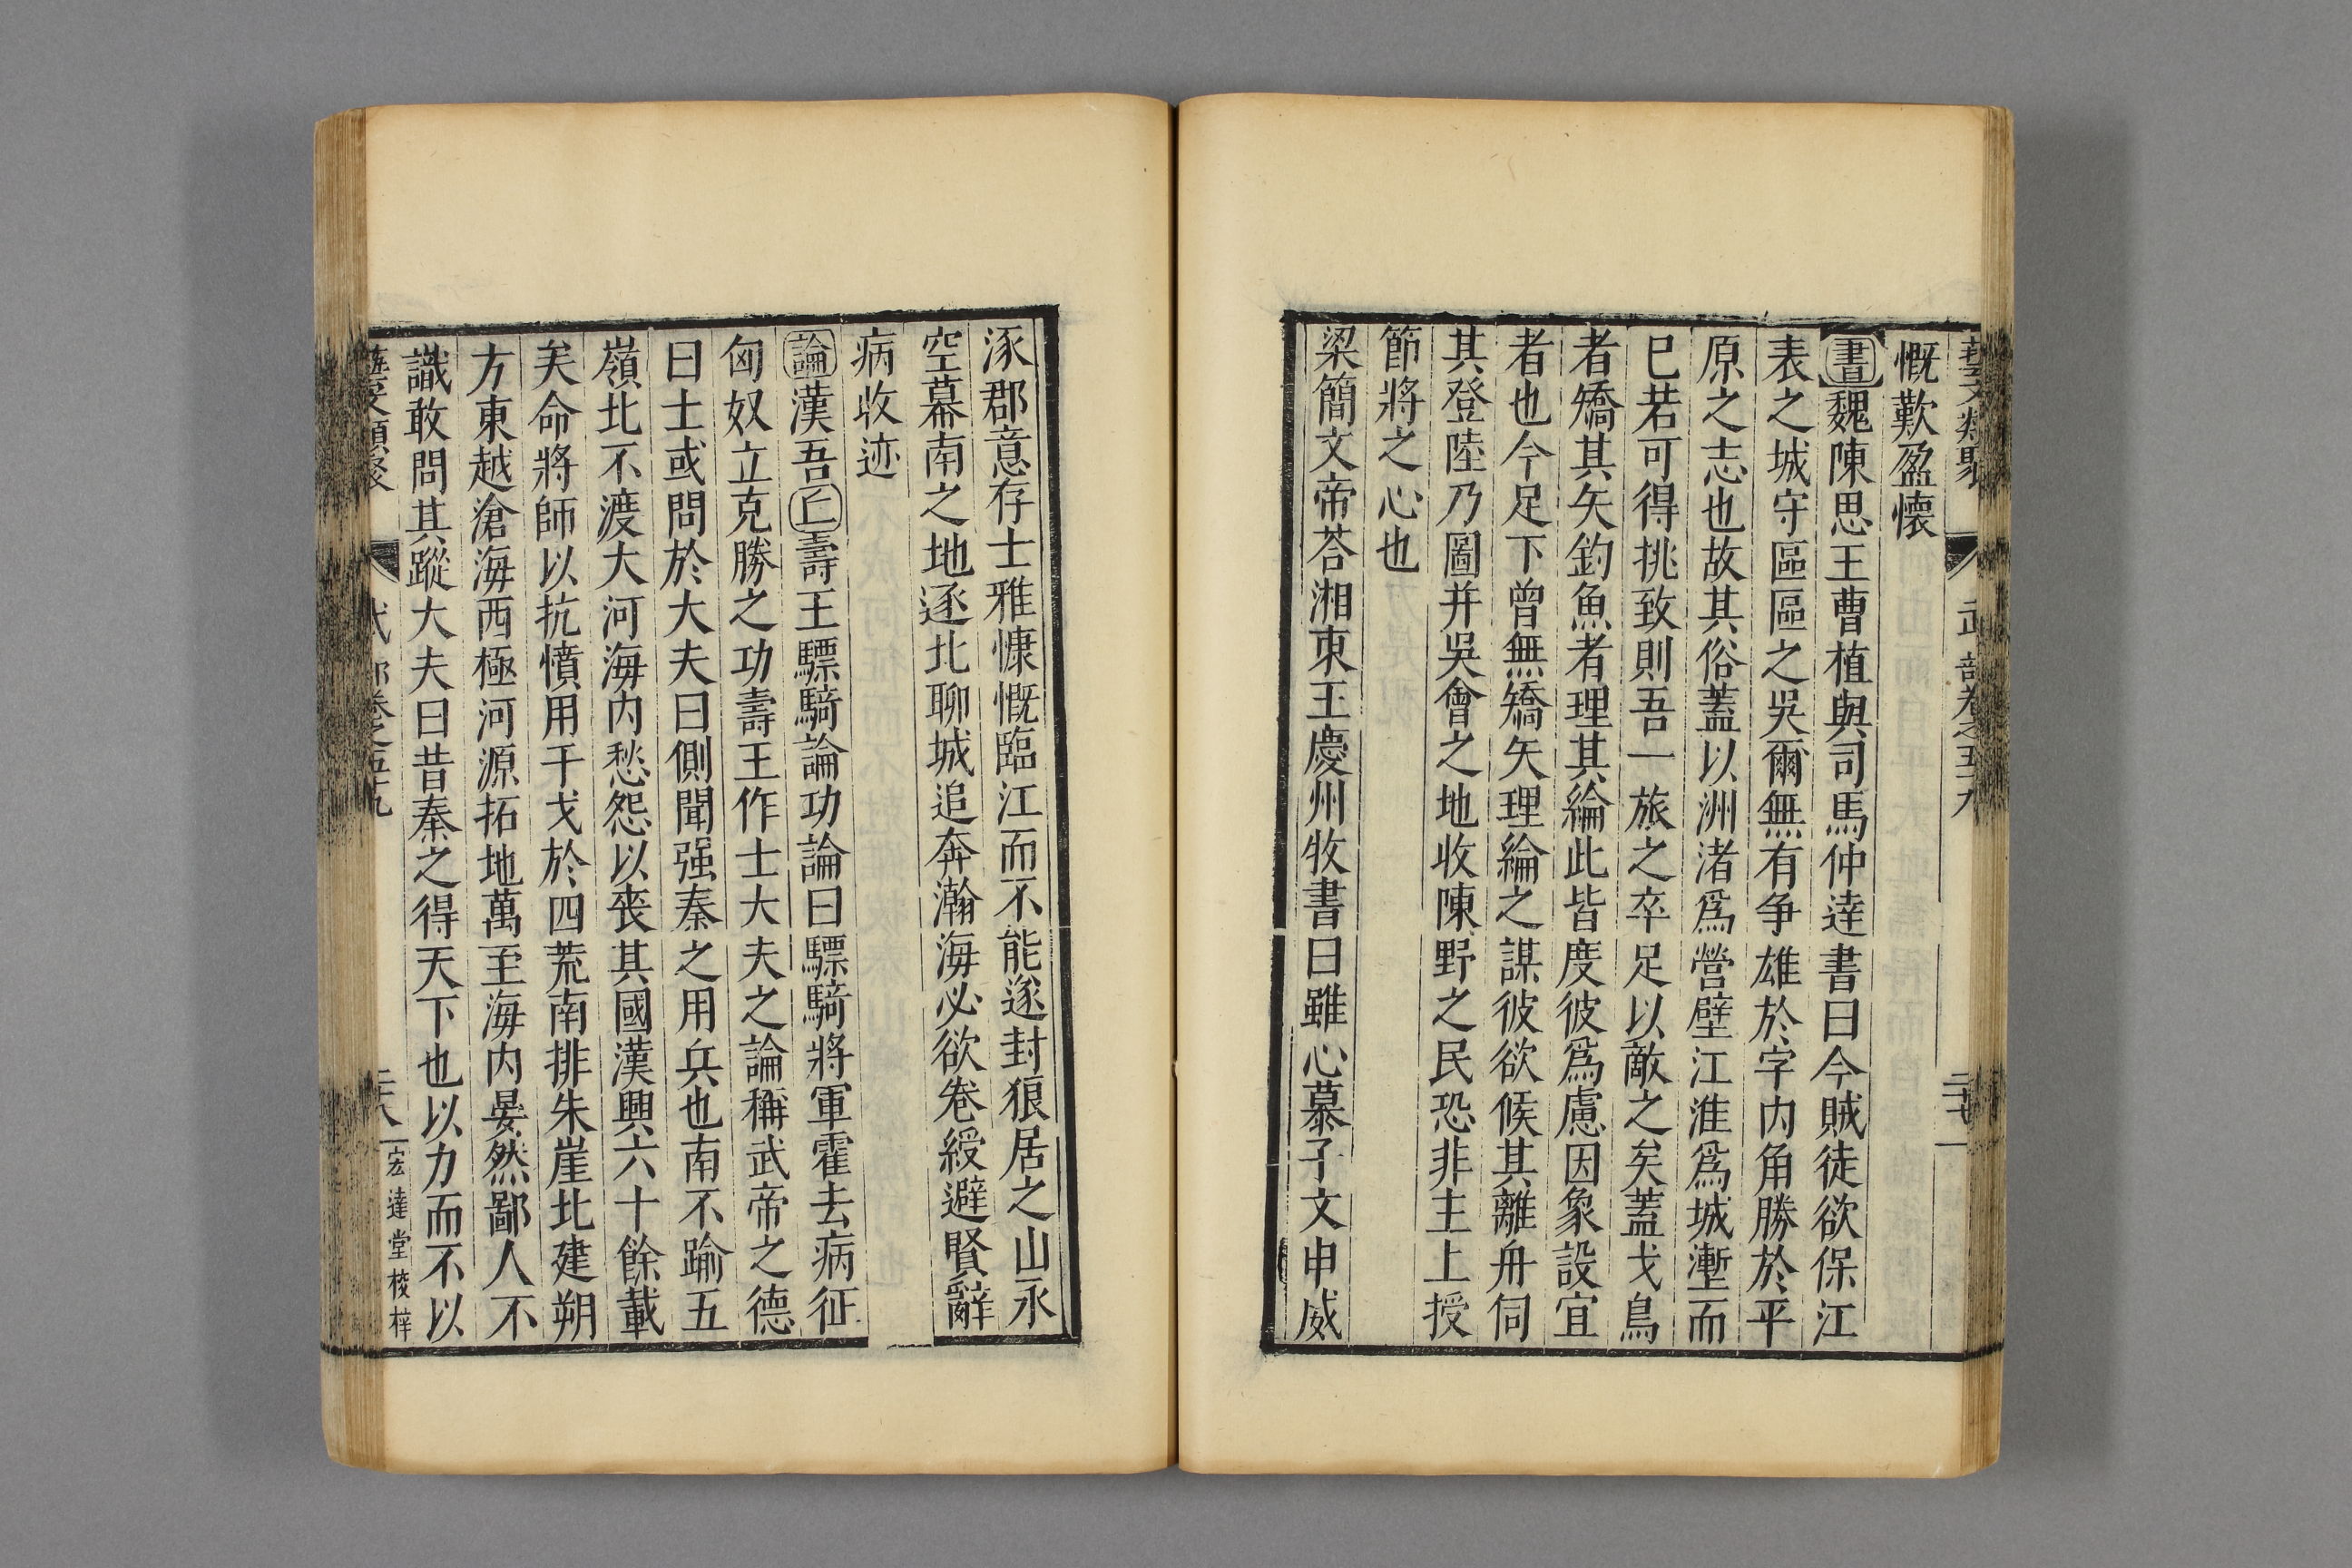 藝文類聚 武部卷之五十九 二十七
慨歎盈懷
書魏陳思王曹植與司馬仲達書曰今賊徒欲保江
表之城守區區之吳爾無有爭雄於字内角勝於平
原之志也故其俗蓋以洲渚爲營壁江淮爲城塹而
巳若可得挑致則吾一旅之卒足以敵之矣蓋弋鳥
者矯其矢釣魚者理其綸此皆度彼爲慮因象設宜
者也今足下曾無矯矢理綸之謀彼欲候其離舟伺
其登陸乃圖并吳會之地收陳野之民恐非主上授
節將之心也
梁簡文帝荅湘東王慶州牧書曰雖心慕子文申威
涿郡意存士雅慷慨臨江而不能遂封狼居之山永
空幕南之地逐北聊城追奔瀚海必欲卷綬避賢辭
病收迹
論漢吾丘壽王驃騎論功論曰驃騎將軍霍去病征
匈奴立克勝之功壽王作士大夫之論稱武帝之德
曰士或問於大夫曰側聞强秦之用兵也南不踰五
嶺北不渡大河海内愁怨以喪其國漢興六十餘載
矣命將師以抗憤用干戈於四荒南排朱崖北建朔
方東越滄海西極河源拓地萬里海内晏然鄙人不
識敢問其蹤大夫曰昔秦之得天下也以力而不以
藝文類聚 武部卷之五十九 二十八 宏達堂校梓